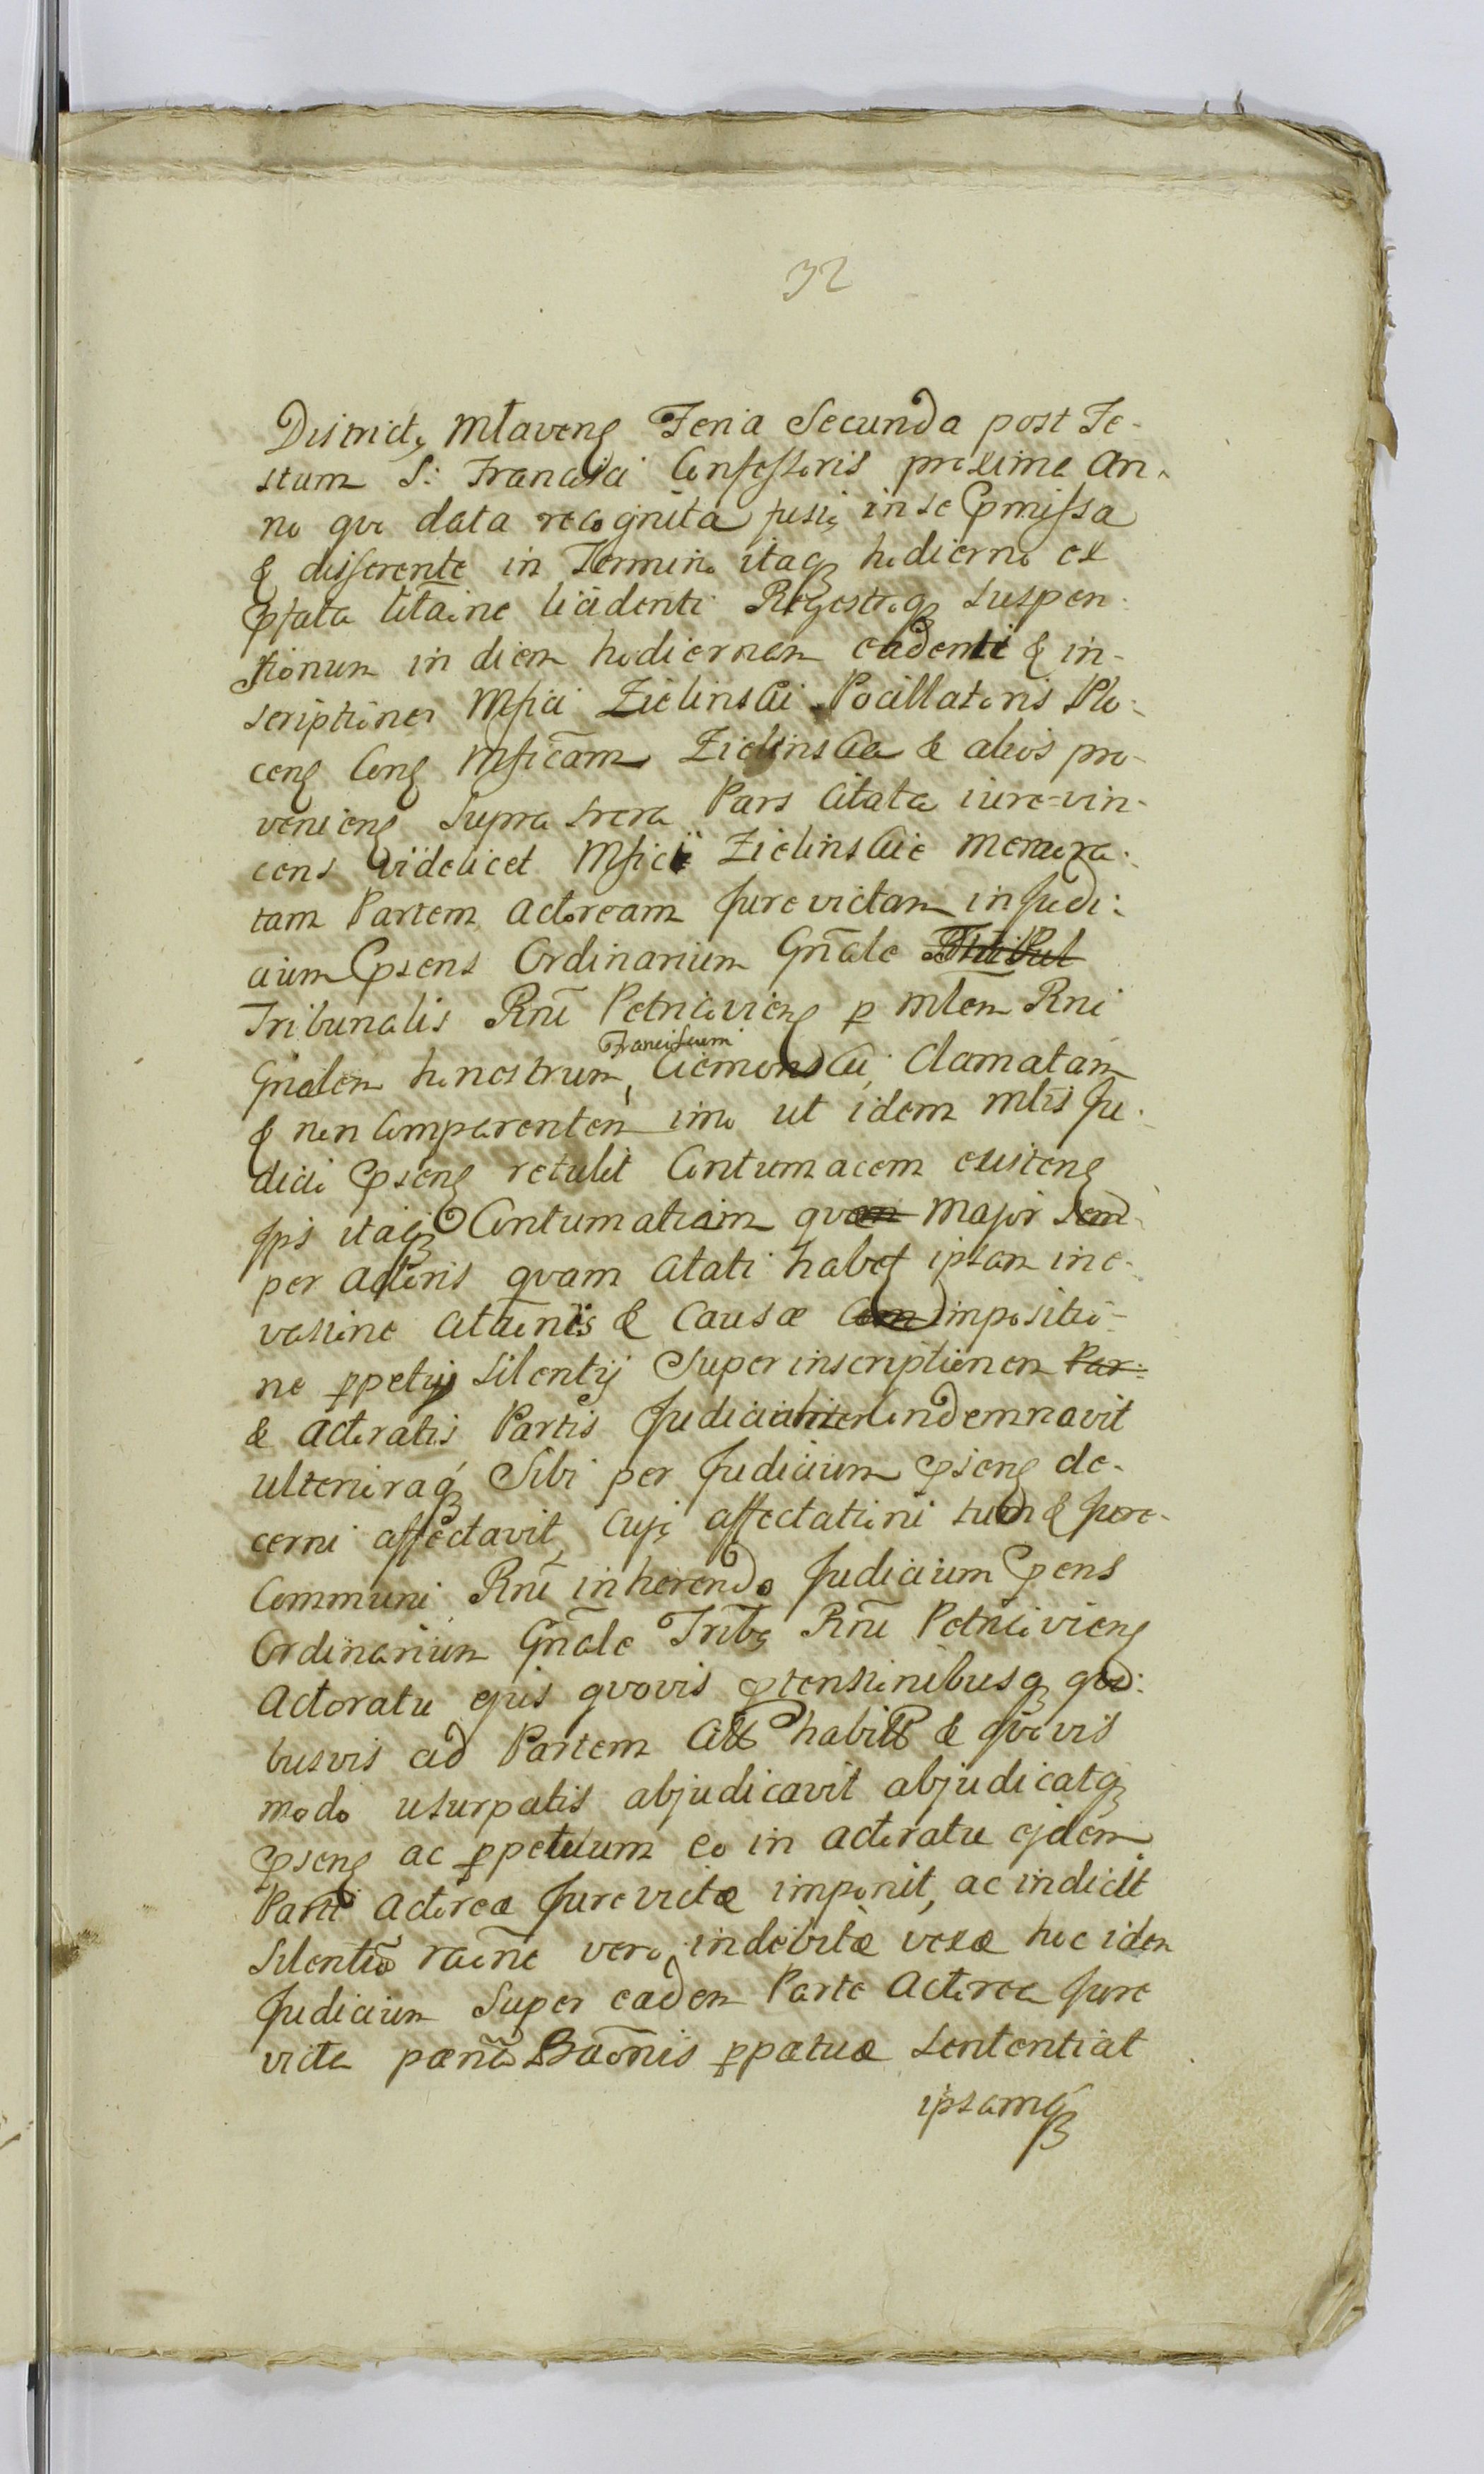 32
District, Mlavens Feria Secunda post Fe-
stum S: Francisci Confessoris proxime An-
no quo data recognita fusi, in se pmissa
& disserente in Termino itaq hodierno ex
pfata Citãine Cadenti Regestroq suspen-
sionum in diem hodiernam cadenti &  in-
scriptiones Mfici Zielinski Pocillatoris Plo-
cens Cons Mficam Zielinska & alios pro-
veniens Supra Pars Citata iure=vin-
cens videlicet Mfici Zielinskie memora-
tam Partem Actoream Jurevictam in Judi-
cium psens Ordinarium Gñale
Tribunalis Rñi Petricoviens p Mlem Rni
Gñalem Franciscum
& non Comparentem imo ut idem mlis Ju-
dicio psens retulit Contumacem existens
Ips itaq Contumatiam quae Major Sem-
per Actoris quam Citati habet ipsam in e-
vasione Citãinis & Causæ impositio-
ne ppetuj Silentij Super inscriptionem Par-
& Actoratis Partis Judicialiter Condemnavit
ulterioraq Sibi per Judicium psens de-
cerni affectavit, Cuj, affectationi tum & Jure-
Communi Rñi inherendo Judicium psens
Ordinarium Gñale Trib Rñi Petricoviens
Actoratu ejus quovis ptensionibusq qui-
busvis ad Partem Citt habitt & quovis
modo usurpatis abjudicavit abjudicatq
psens ac ppetuum eo in Actoratu ejdem
Parti Actoreæ Jurevictæ imponit, ac indicit
Silentiũ raõne vero indebitæ vexæ hoc idem
Judicium Super eadem Parte Actorea Jure
victa pænã Bãonis ppætuæ Sententiat
ipsamq